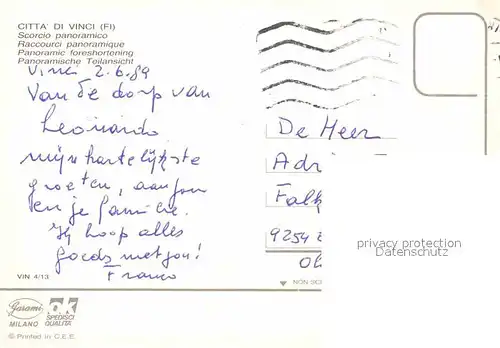 CITTA' DI VINCI (FI)
Scorcio panoramico
Raccourci panoramique
Panoramic foreshortening
Panoramische Teilansicht
Vinci 2.6.89
Van de dorp van
Leonardo
mijn hartelijkste
groeten, aan jou
en je familie.
Ij hoop alles
goeds met jou!
Franco
De Heer
Adri
Falk
9254
OL
privacy protection
Datenschutz
VIN 4/13
NON SC
Garami
MILANO
SPEDISCI
QUALITÀ
© Printed in C.E.E.